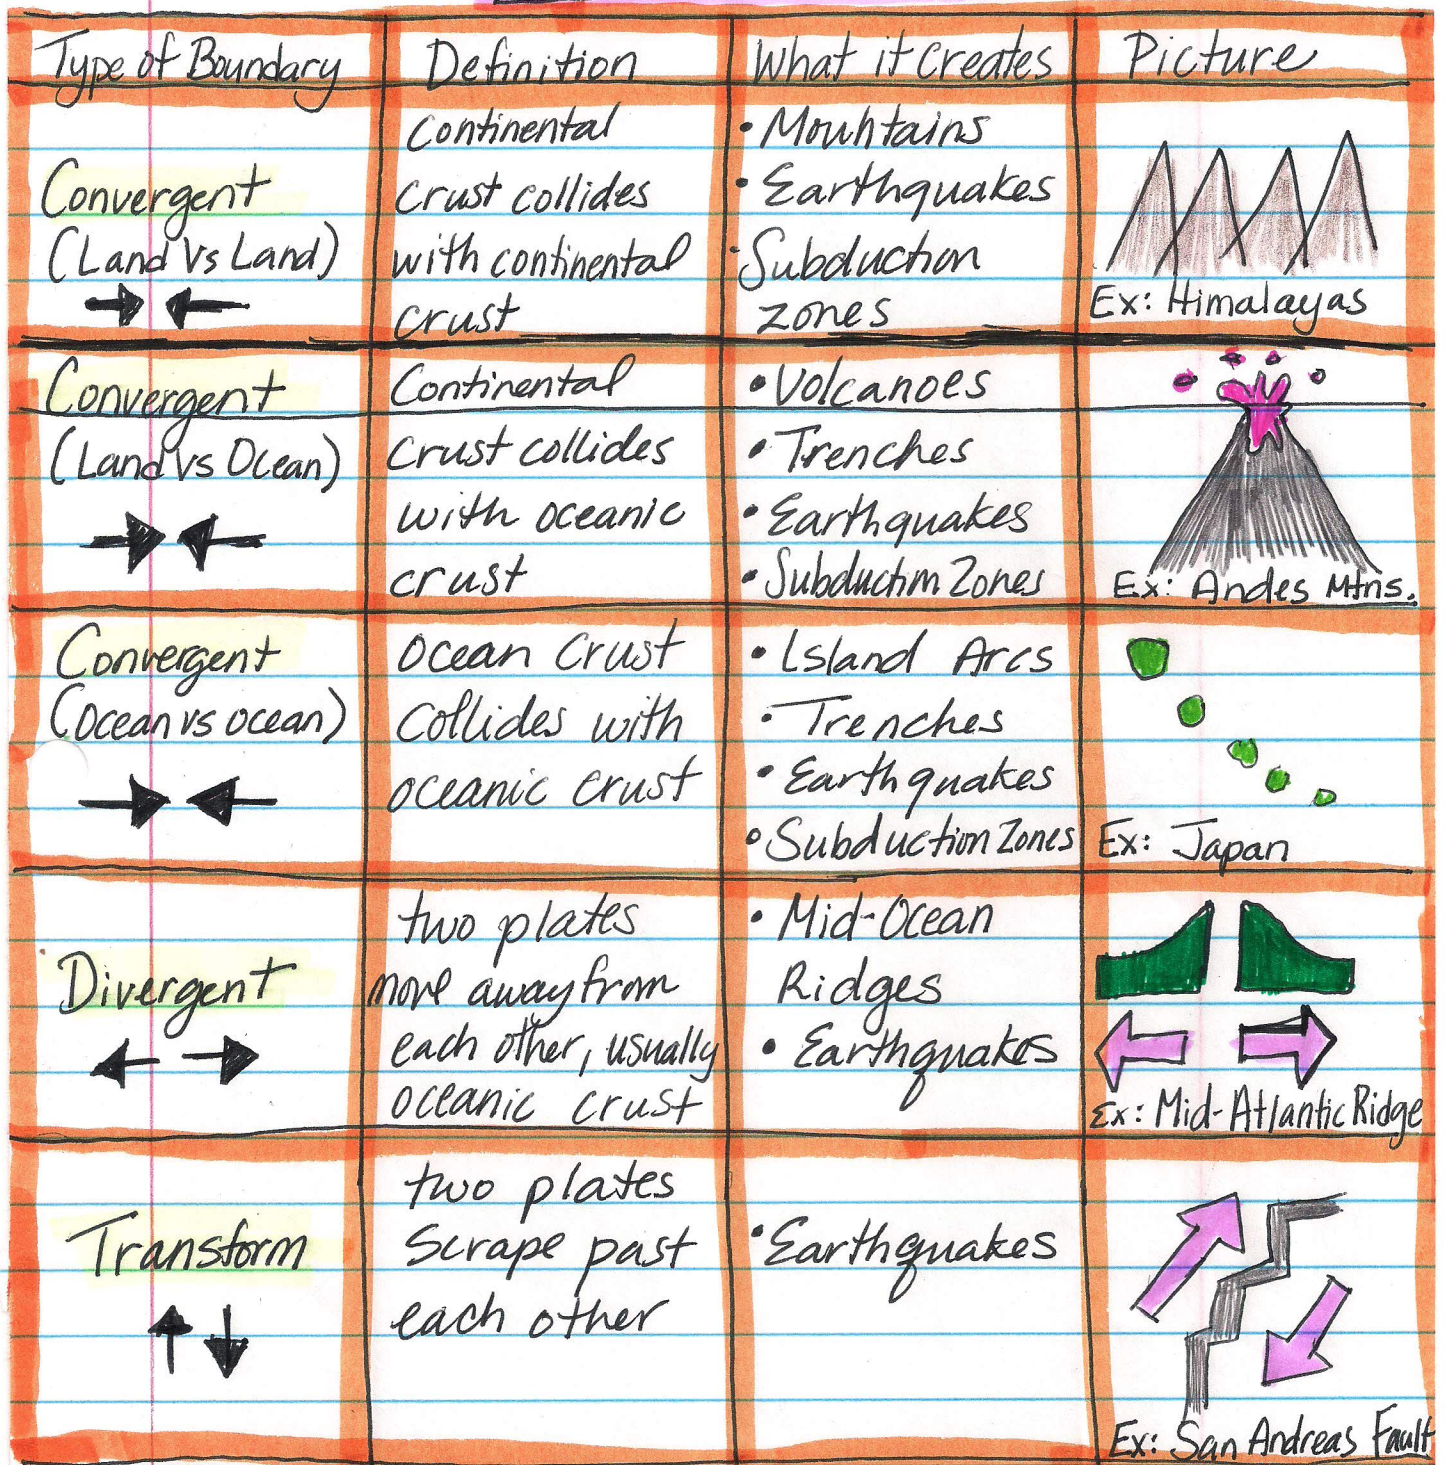 Type of Boundary
Definition
What it Creates
Picture
Convergent
(Land Vs Land)
Continental
crust collides
with continental
crust
• Mountains
• Earthquakes
• Subduction
zones
Ex: Himalayas
Convergent
(Land vs Ocean)
Continental
Crust collides
with oceanic
crust
• Volcanoes
• Trenches
• Earthquakes
• Subduction Zones
Ex: Andes Mtns.
Convergent
(Ocean vs ocean)
Ocean Crust
Collides with
oceanic crust
• Island Arcs
• Trenches
• Earthquakes
• Subduction Zones
Ex: Japan
Divergent
two plates
move away from
each other, usually
oceanic crust
• Mid-Ocean
Ridges
• Earthquakes
Ex: Mid-Atlantic Ridge
Transform
two plates
Scrape past
each other
• Earthquakes
Ex: San Andreas Fault